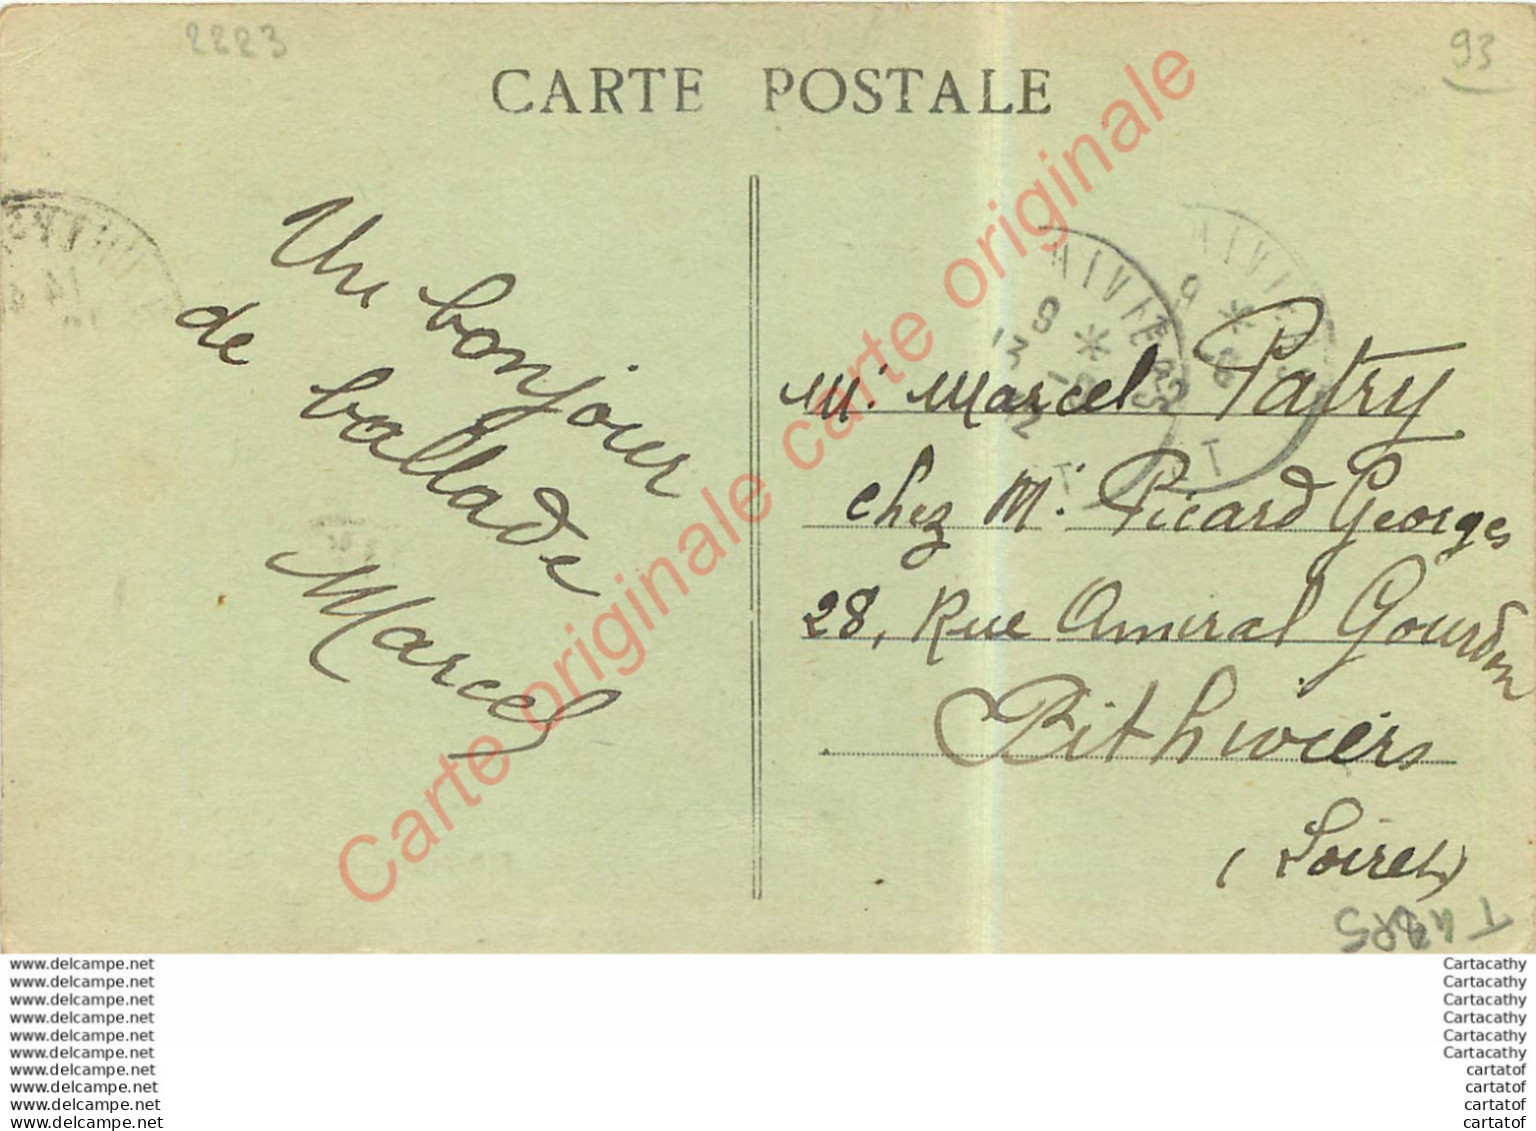 2223
93
CARTE POSTALE
Un bonjour
de ballade
Marcel
Mr. Marcel Patry
chez Mr. Picard Georges
28, Rue Amiral Gourdon
Pithiviers
(Loiret)
Carte originale carte originale carte originale
www.delcampe.net
www.delcampe.net
www.delcampe.net
www.delcampe.net
www.delcampe.net
www.delcampe.net
www.delcampe.net
www.delcampe.net
www.delcampe.net
www.delcampe.net
Cartacathy
Cartacathy
Cartacathy
Cartacathy
Cartacathy
Cartacathy
cartatof
cartatof
cartatof
cartatof